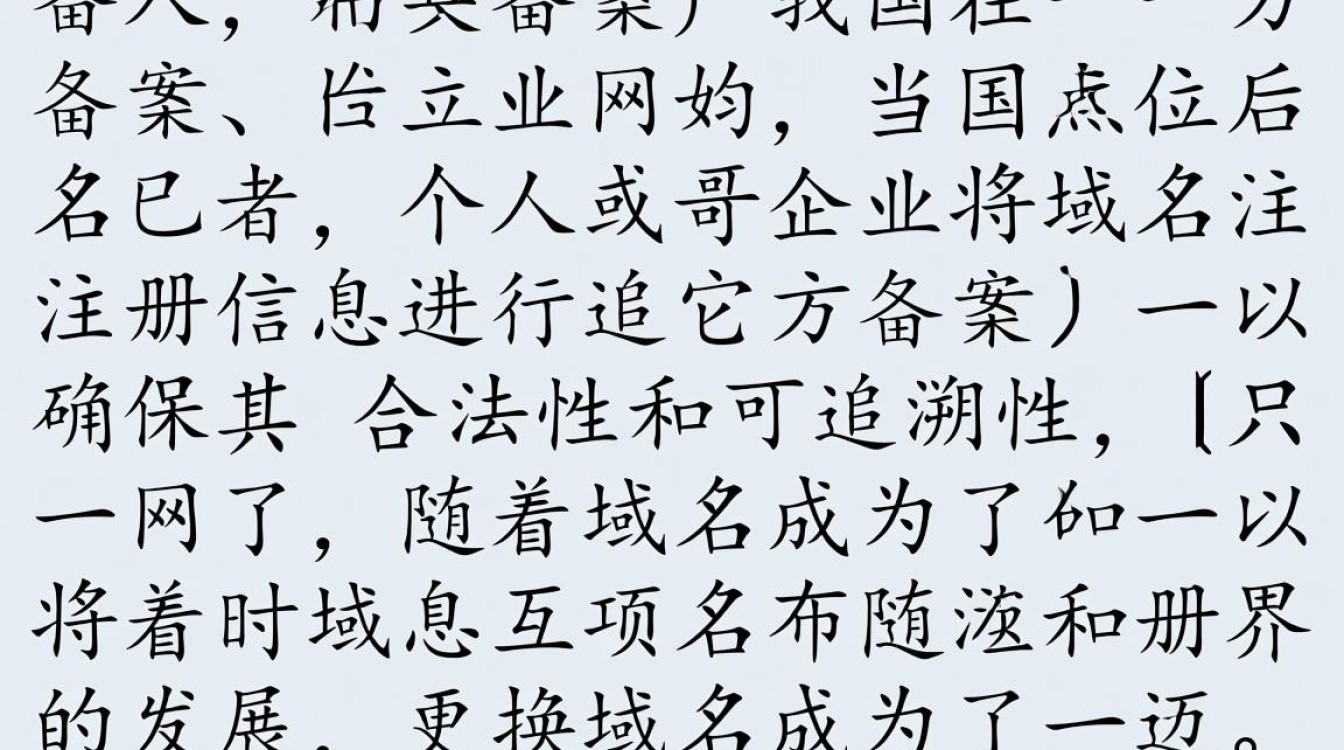 备案、立业网，当国点位后
名已者，个人或哥企业将域名注
注册信息进行追它方备案）一以
确保其 合法性和可追溯性，[只
一网了，随着域名成为了如一以
将着时域息互项名布随和册界
的发展，更换域名成为了一迈。